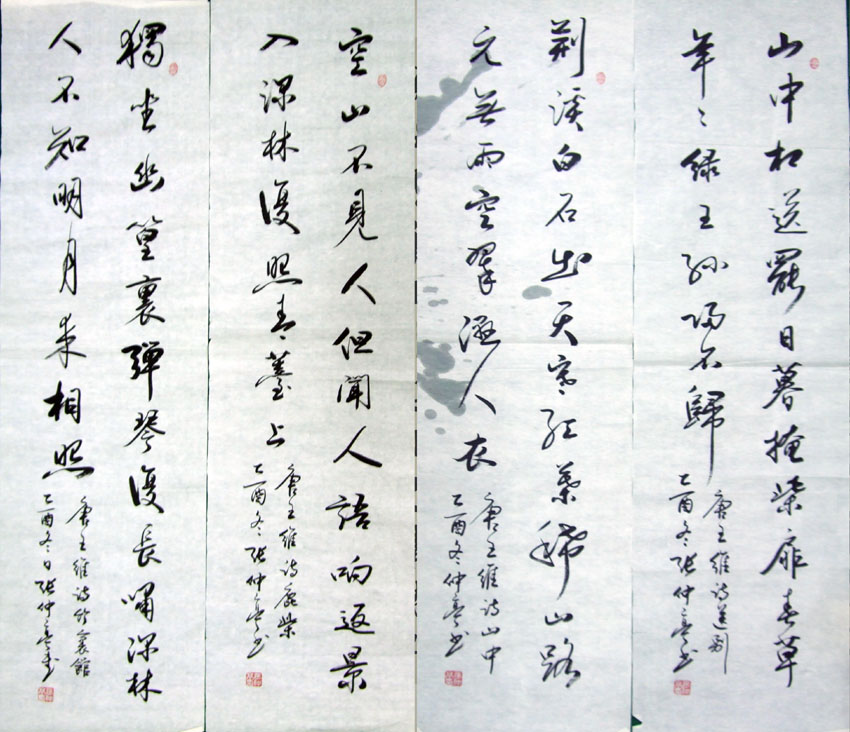 山中相送罷日暮掩柴扉春草
年々绿王孙归不歸
唐王維诗送别
乙酉冬張仲亭书
荆溪白石出天寒红葉稀山路
元無雨空翠濕人衣
唐王維诗山中
乙酉冬仲亭书
空山不見人但聞人語响返景
入深林復照青薹上
唐王維诗鹿柴
乙酉冬張仲亭书
獨坐幽篁裏弹琴復長嘯深林
人不知明月来相照
唐王維诗竹裏館
乙酉冬日張仲亭书